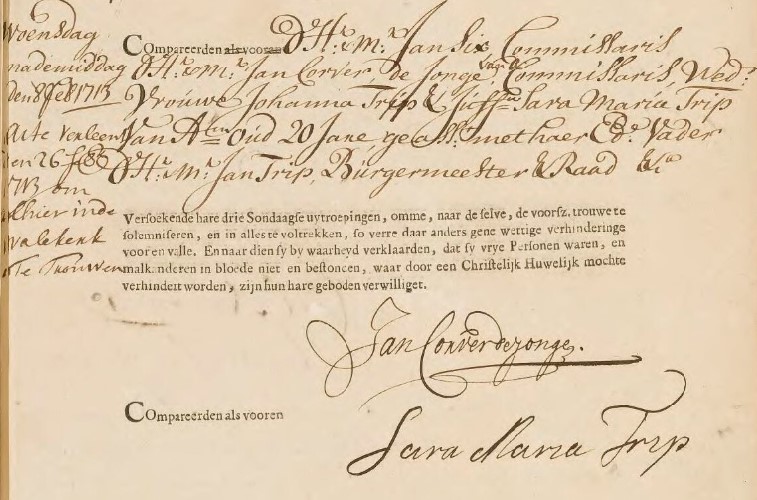 Woensdag
nademiddag
den 8 Feb 1713
Acte verleent
den 26 Feb
1713 om
alhier inde
Walekerk
te Trouwen
COmpareerden als vooren D'Hr. & Mr. Jan Six Commissaris
D'Hr. & Mr. Jan Corver de Jonge, van A Commissaris Wedr.
Vrouwe Johanna Trip & Juffr. Sara Maria Trip
van A oud 20 Jare, geasst. met haer Ed. Vader
D'Hr. & Mr. Jan Trip, Burgermeester & Raad &c.
Versoekende hare drie Sondaagse uytroepingen, omme, naar de selve, de voorsz. trouwe te
solemniseren, en in alles te voltrekken, so verre daar anders gene wettige verhinderinge
voor en valle. En naar dien sy by waarheyd verklaarden, dat sy vrye Personen waren, en
malkanderen in bloede niet en bestoncen, waar door een Christelijk Huwelijk mochte
verhindert worden, zijn hun hare geboden verwilliget.
Jan Corver de Jonge.
COmpareerden als vooren
Sara Maria Trip